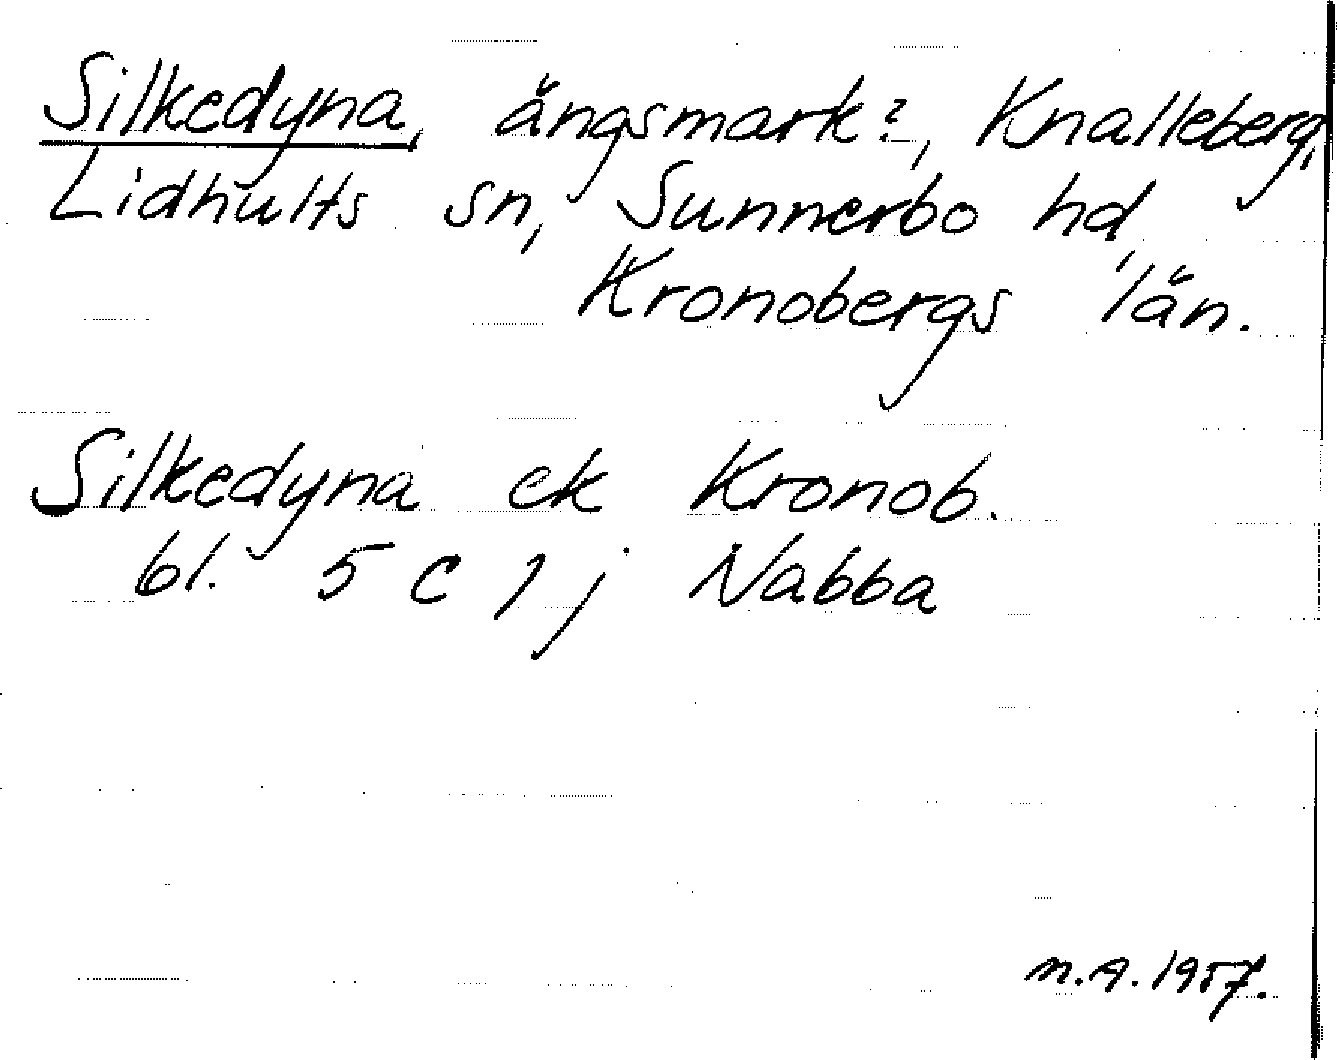 Silkedyna, ängsmark?, Knalleberg,
Lidhults sn, Sunnerbo hd,
Kronobergs län.
Silkedyna ek Kronob.
bl. 5 C 1 j Nabba
M.A. 1957.